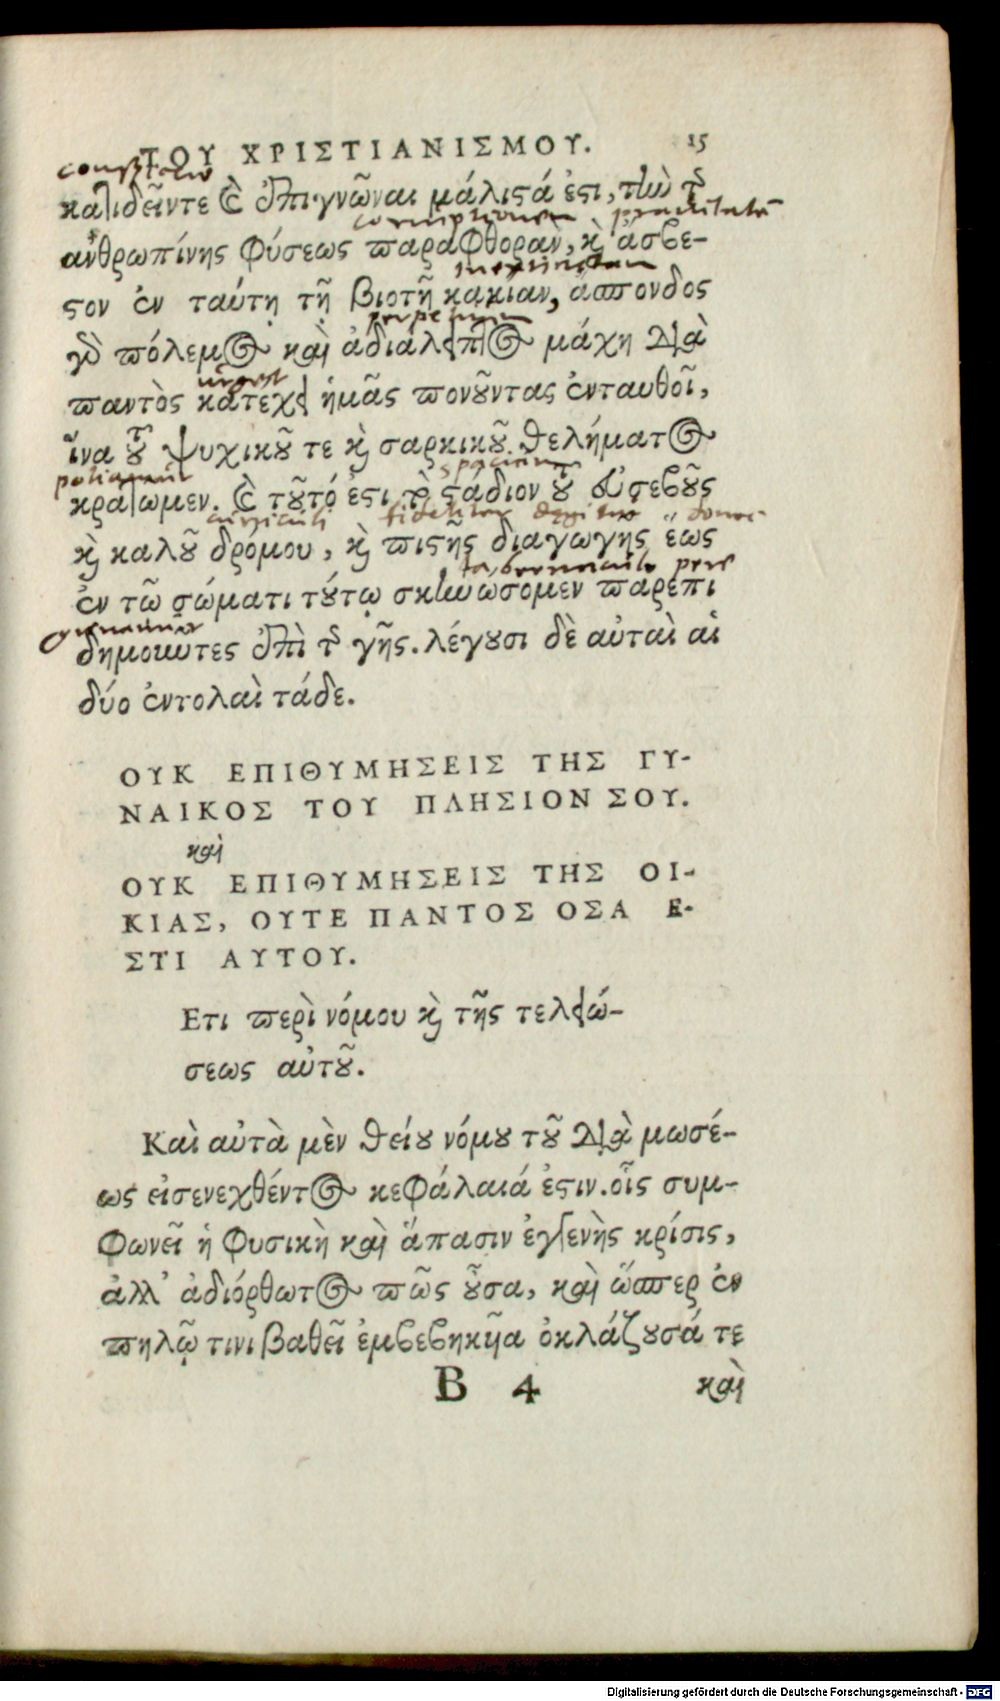 ΤΟΥ ΧΡΙΣΤΙΑΝΙΣΜΟΥ. 15
κατιδεῖν τε καὶ ἐπιγνῶναι μάλιστά ἐστι, τὴν τῆς
corruptionem prauitatē
ἀνθρωπίνης φύσεως παραφθορὰν, καὶ ἄσβε-
inextinctam
στον ἐν ταύτῃ τῇ βιοτῇ κακίαν, ἄσπονδος
perpetuum
γὰρ πόλεμος καὶ ἀδιάλειπτος μάχη διὰ
urget
παντὸς κατέχει ἡμᾶς πονοῦντας ἐνταυθοῖ,
ἵνα τοῦ ψυχικοῦ τε καὶ σαρκικοῦ θελήματος
potiamur spacium
κρατῶμεν. καὶ τοῦτό ἐστι τὸ στάδιον τοῦ εὐσεβοῦς
curriculi fideliter donec
καὶ καλοῦ δρόμου, καὶ πιστῆς διαγωγῆς ἕως
ἐν τῷ σώματι τούτῳ σκηνώσομεν παρεπι
δημοῦντες ἐπὶ τῆς γῆς. λέγουσι δὲ αὐταὶ αἱ
δύο ἐντολαὶ τάδε.
ΟΥΚ ΕΠΙΘΥΜΗΣΕΙΣ ΤΗΣ ΓΥ-
ΝΑΙΚΟΣ ΤΟΥ ΠΛΗΣΙΟΝ ΣΟΥ.
καὶ
ΟΥΚ ΕΠΙΘΥΜΗΣΕΙΣ ΤΗΣ ΟΙ-
ΚΙΑΣ, ΟΥΤΕ ΠΑΝΤΟΣ ΟΣΑ Ε-
ΣΤΙ ΑΥΤΟΥ.
Ετι περὶ νόμου καὶ τῆς τελειώ-
σεως αὐτοῦ.
Καὶ αὐτὰ μὲν θείου νόμου τοῦ διὰ μωσέ-
ως εἰσενεχθέντος κεφάλαιά ἐστιν. οἷς συμ-
φωνεῖ ἡ φυσικὴ καὶ ἅπασιν ἐγγενὴς κρίσις,
ἀλλ' ἀδιόρθωτος πῶς οὖσα, καὶ ὥσπερ ἐν
πηλῷ τινι βαθεῖ ἐμβεβηκῦα ὀκλάζουσά τε
B 4 καὶ
Digitalisierung gefördert durch die Deutsche Forschungsgemeinschaft - DFG